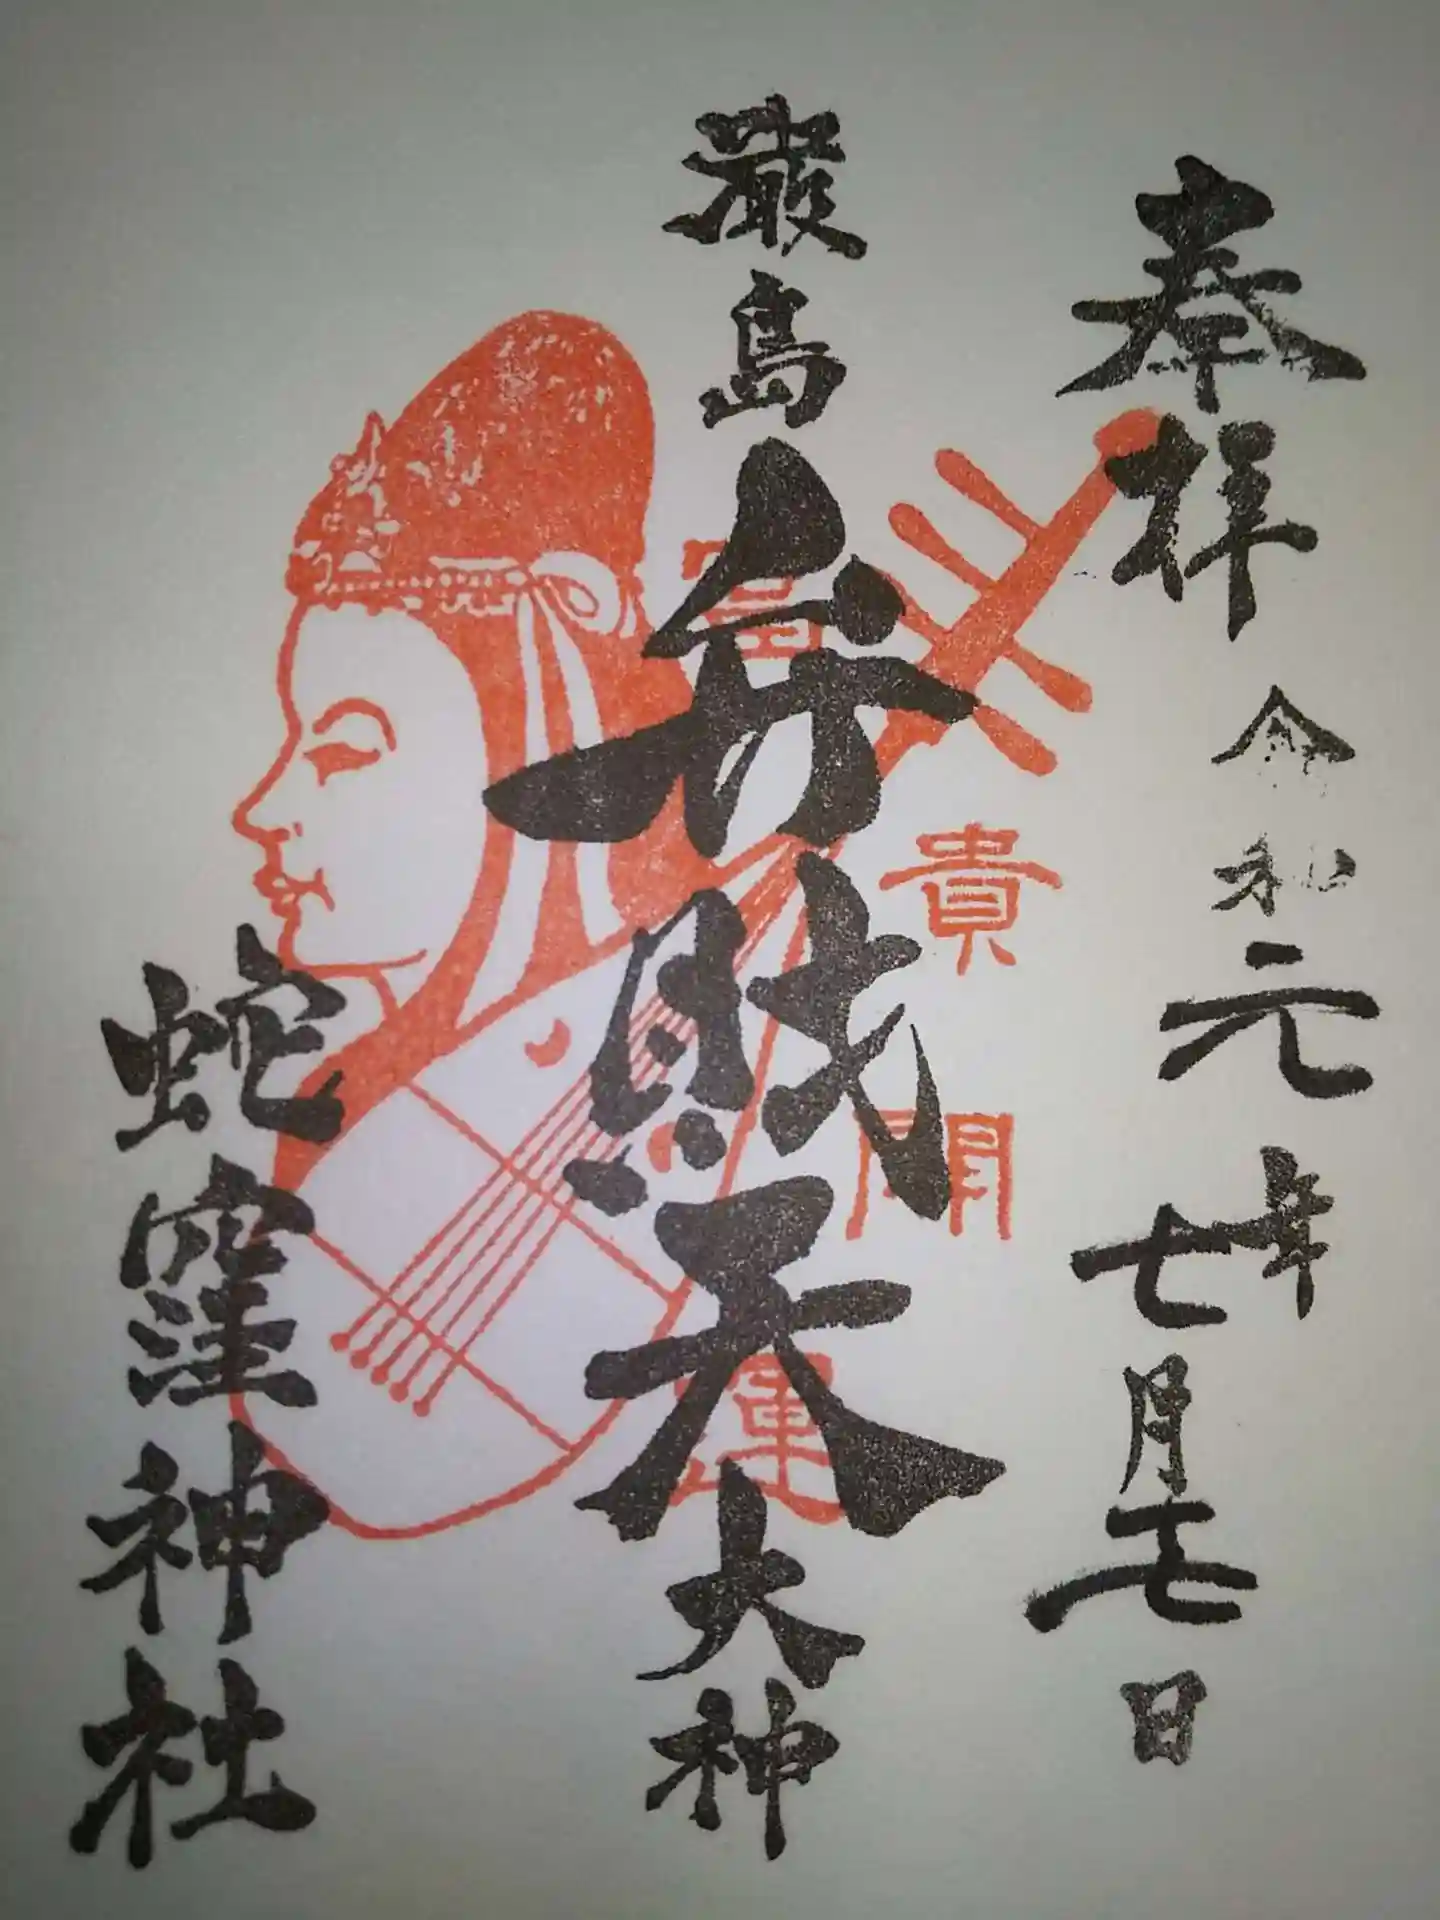 奉拝
令和元年
七月十七日
厳島弁財天大神
富貴開運
蛇窪神社